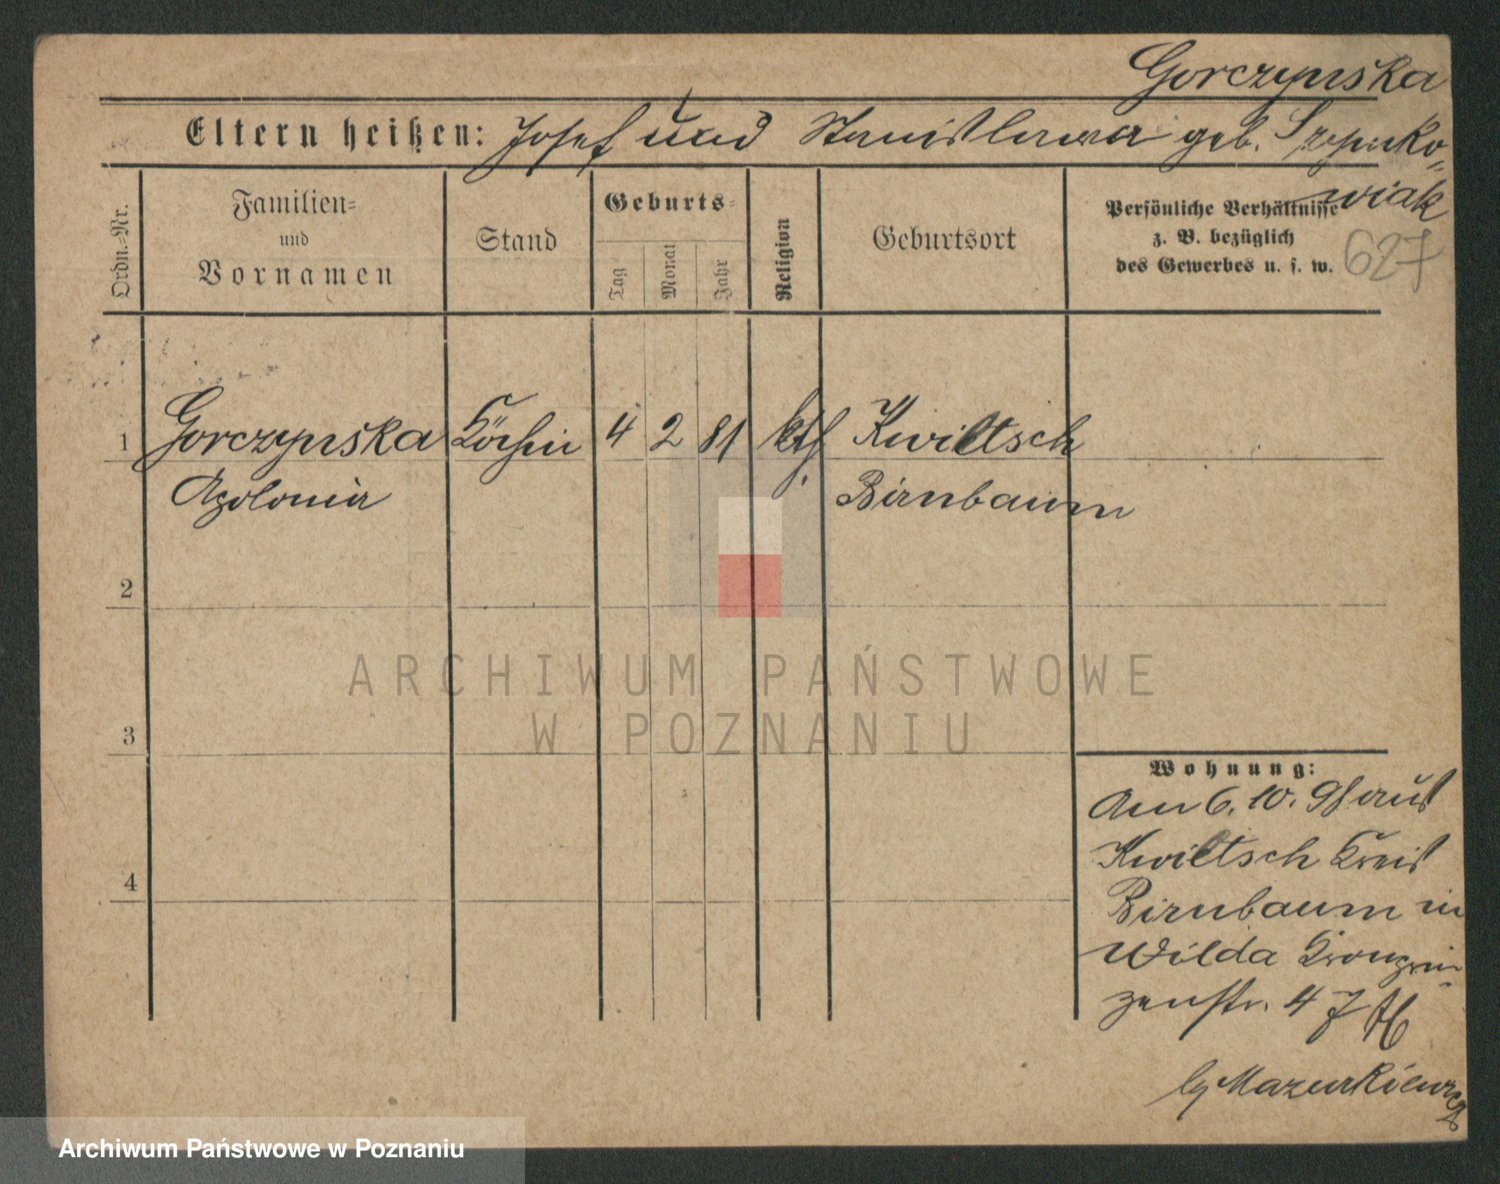 Gorczynska
Eltern heißen: Josef und Stanislawa geb. Szymko-
wiak
Ordn.-Nr.
Familien-
und
Vornamen
Stand
Geburts-
Tag
Monat
Jahr
Religion
Geburtsort
Persönliche Verhältnisse
z. B. bezüglich
des Gewerbes u. s. w.
627
1 Gorczynska Köchin 4 2 81 kth Kwiltsch
Apolonia Birnbaum
2
3
4
Wohnung:
Am 6. 10. 98 aus
Kwiltsch Kreis
Birnbaum in
Wilda Kronprin-
zenstr. 47
by Mazurkiewicz
ARCHIWUM PAŃSTWOWE
W POZNANIU
Archiwum Państwowe w Poznaniu